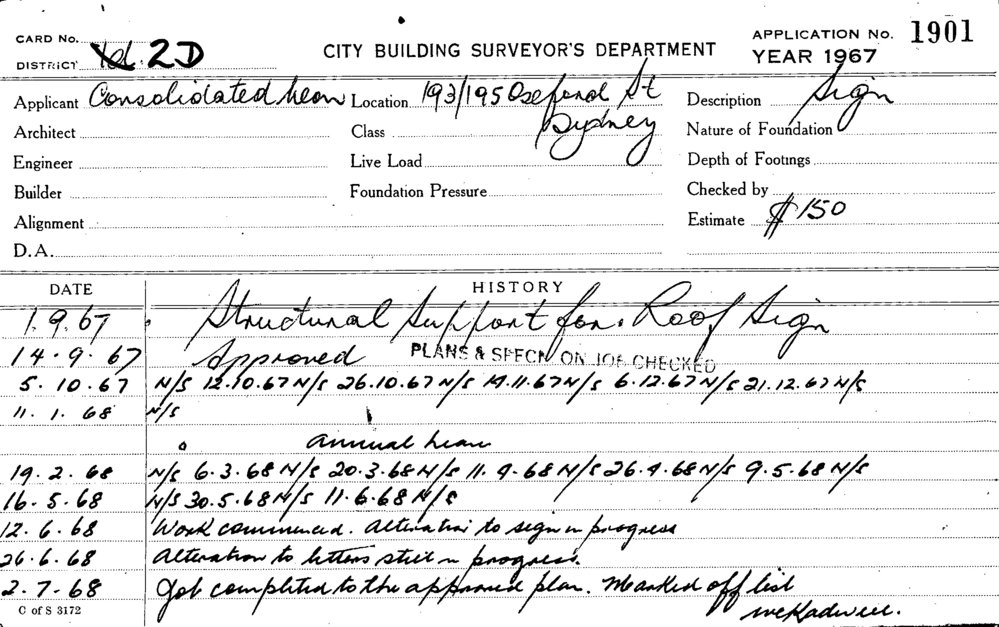 CARD No.
DISTRICT 2D
CITY BUILDING SURVEYOR'S DEPARTMENT
APPLICATION No. 1901
YEAR 1967
Applicant Consolidated Neon Location 193/195 Oxford St Sydney Description Sign
Architect Class Nature of Foundation
Engineer Live Load Depth of Footings
Builder Foundation Pressure Checked by
Alignment Estimate $150
D.A.
DATE HISTORY
1.9.67 Structural Support for Roof Sign
14.9.67 Approved PLANS & SPECN ON JOB CHECKED
5.10.67 N/S 12.10.67 N/S 26.10.67 N/S 14.11.67 N/S 6.12.67 N/S 21.12.67 N/S
11.1.68 N/S
Annual
19.2.68 N/S 6.3.68 N/S 20.3.68 N/S 11.4.68 N/S 26.4.68 N/S 9.5.68 N/S
16.5.68 N/S 30.5.68 N/S 11.6.68 N/S
12.6.68 Work commenced. Alteration to sign in progress
26.6.68 Alteration to letters still in progress.
2.7.68 Job completed to the approved plan. Marked off list
C of S 3172